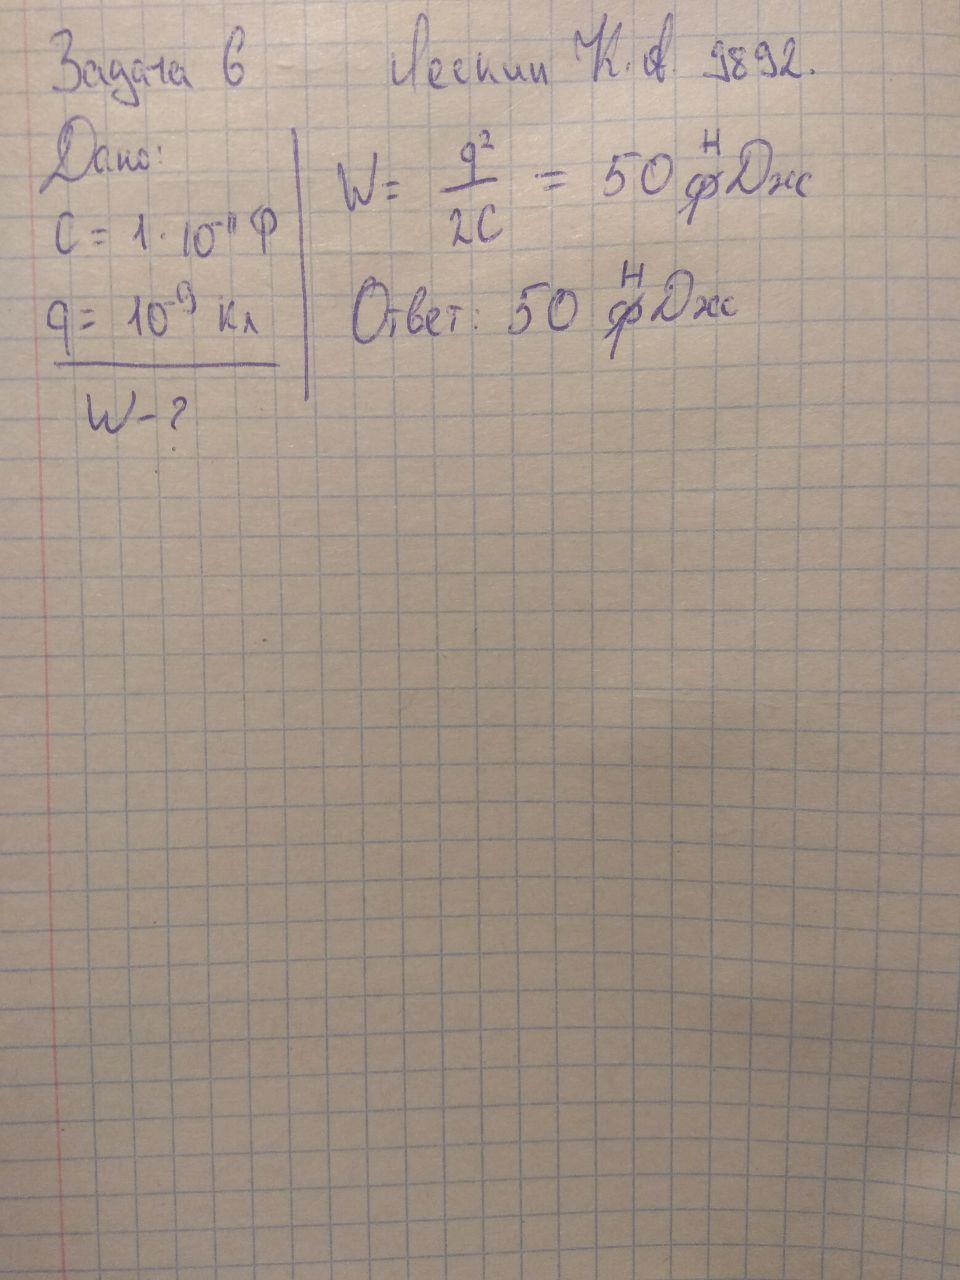 Задача 6 Лескин К.А. 9892.
Дано:
C = 1·10⁻¹¹ Ф
q = 10⁻⁹ Кл
W - ?
W = q²/2C = 50 нДж
Ответ: 50 нДж